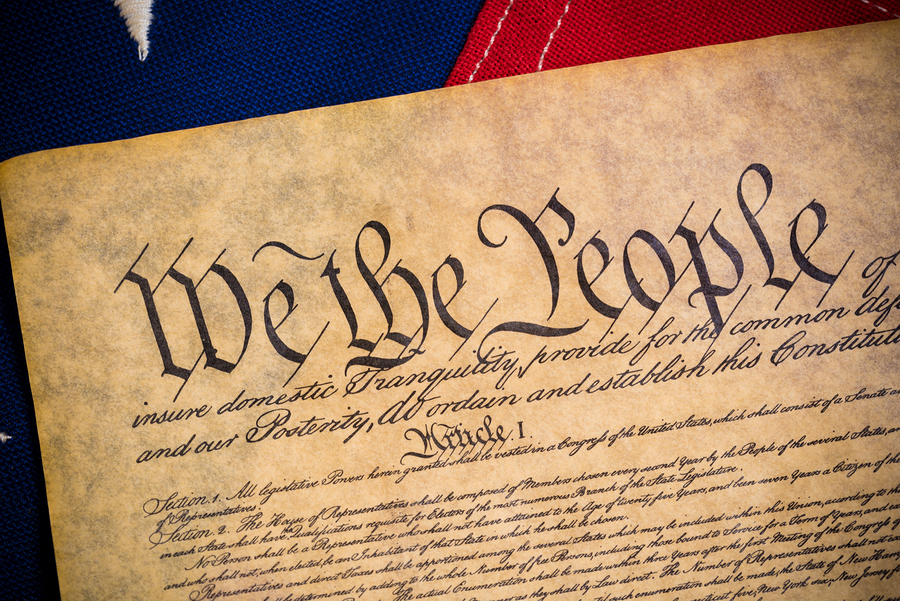 We the People of
insure domestic Tranquility, provide for the common def
and our Posterity, do ordain and establish this Constitut
Article. I.
Section. 1. All legislative Powers herein granted shall be vested in a Congress of the United States, which shall consist of a Senate a
of Representatives.
Section. 2. The House of Representatives shall be composed of Members chosen every second Year by the People of the several States, a
in each State shall have the Qualifications requisite for Electors of the most numerous Branch of the State Legislature.
No Person shall be a Representative who shall not have attained to the Age of twenty five Years, and been seven Years a Citizen of the
and who shall not, when elected, be an Inhabitant of that State in which he shall be chosen.
Representatives and direct Taxes shall be apportioned among the several States which may be included within this Union, according to th
shall be determined by adding to the whole Number of free Persons, including those bound to Service for a Term of Years, and
The actual Enumeration shall be made within three Years after the first Meeting of the Congress of
as they shall by Law direct. The Number of Representatives shall not
until such enumeration shall be made, the State of New Ham
five, New York six, New Jersey